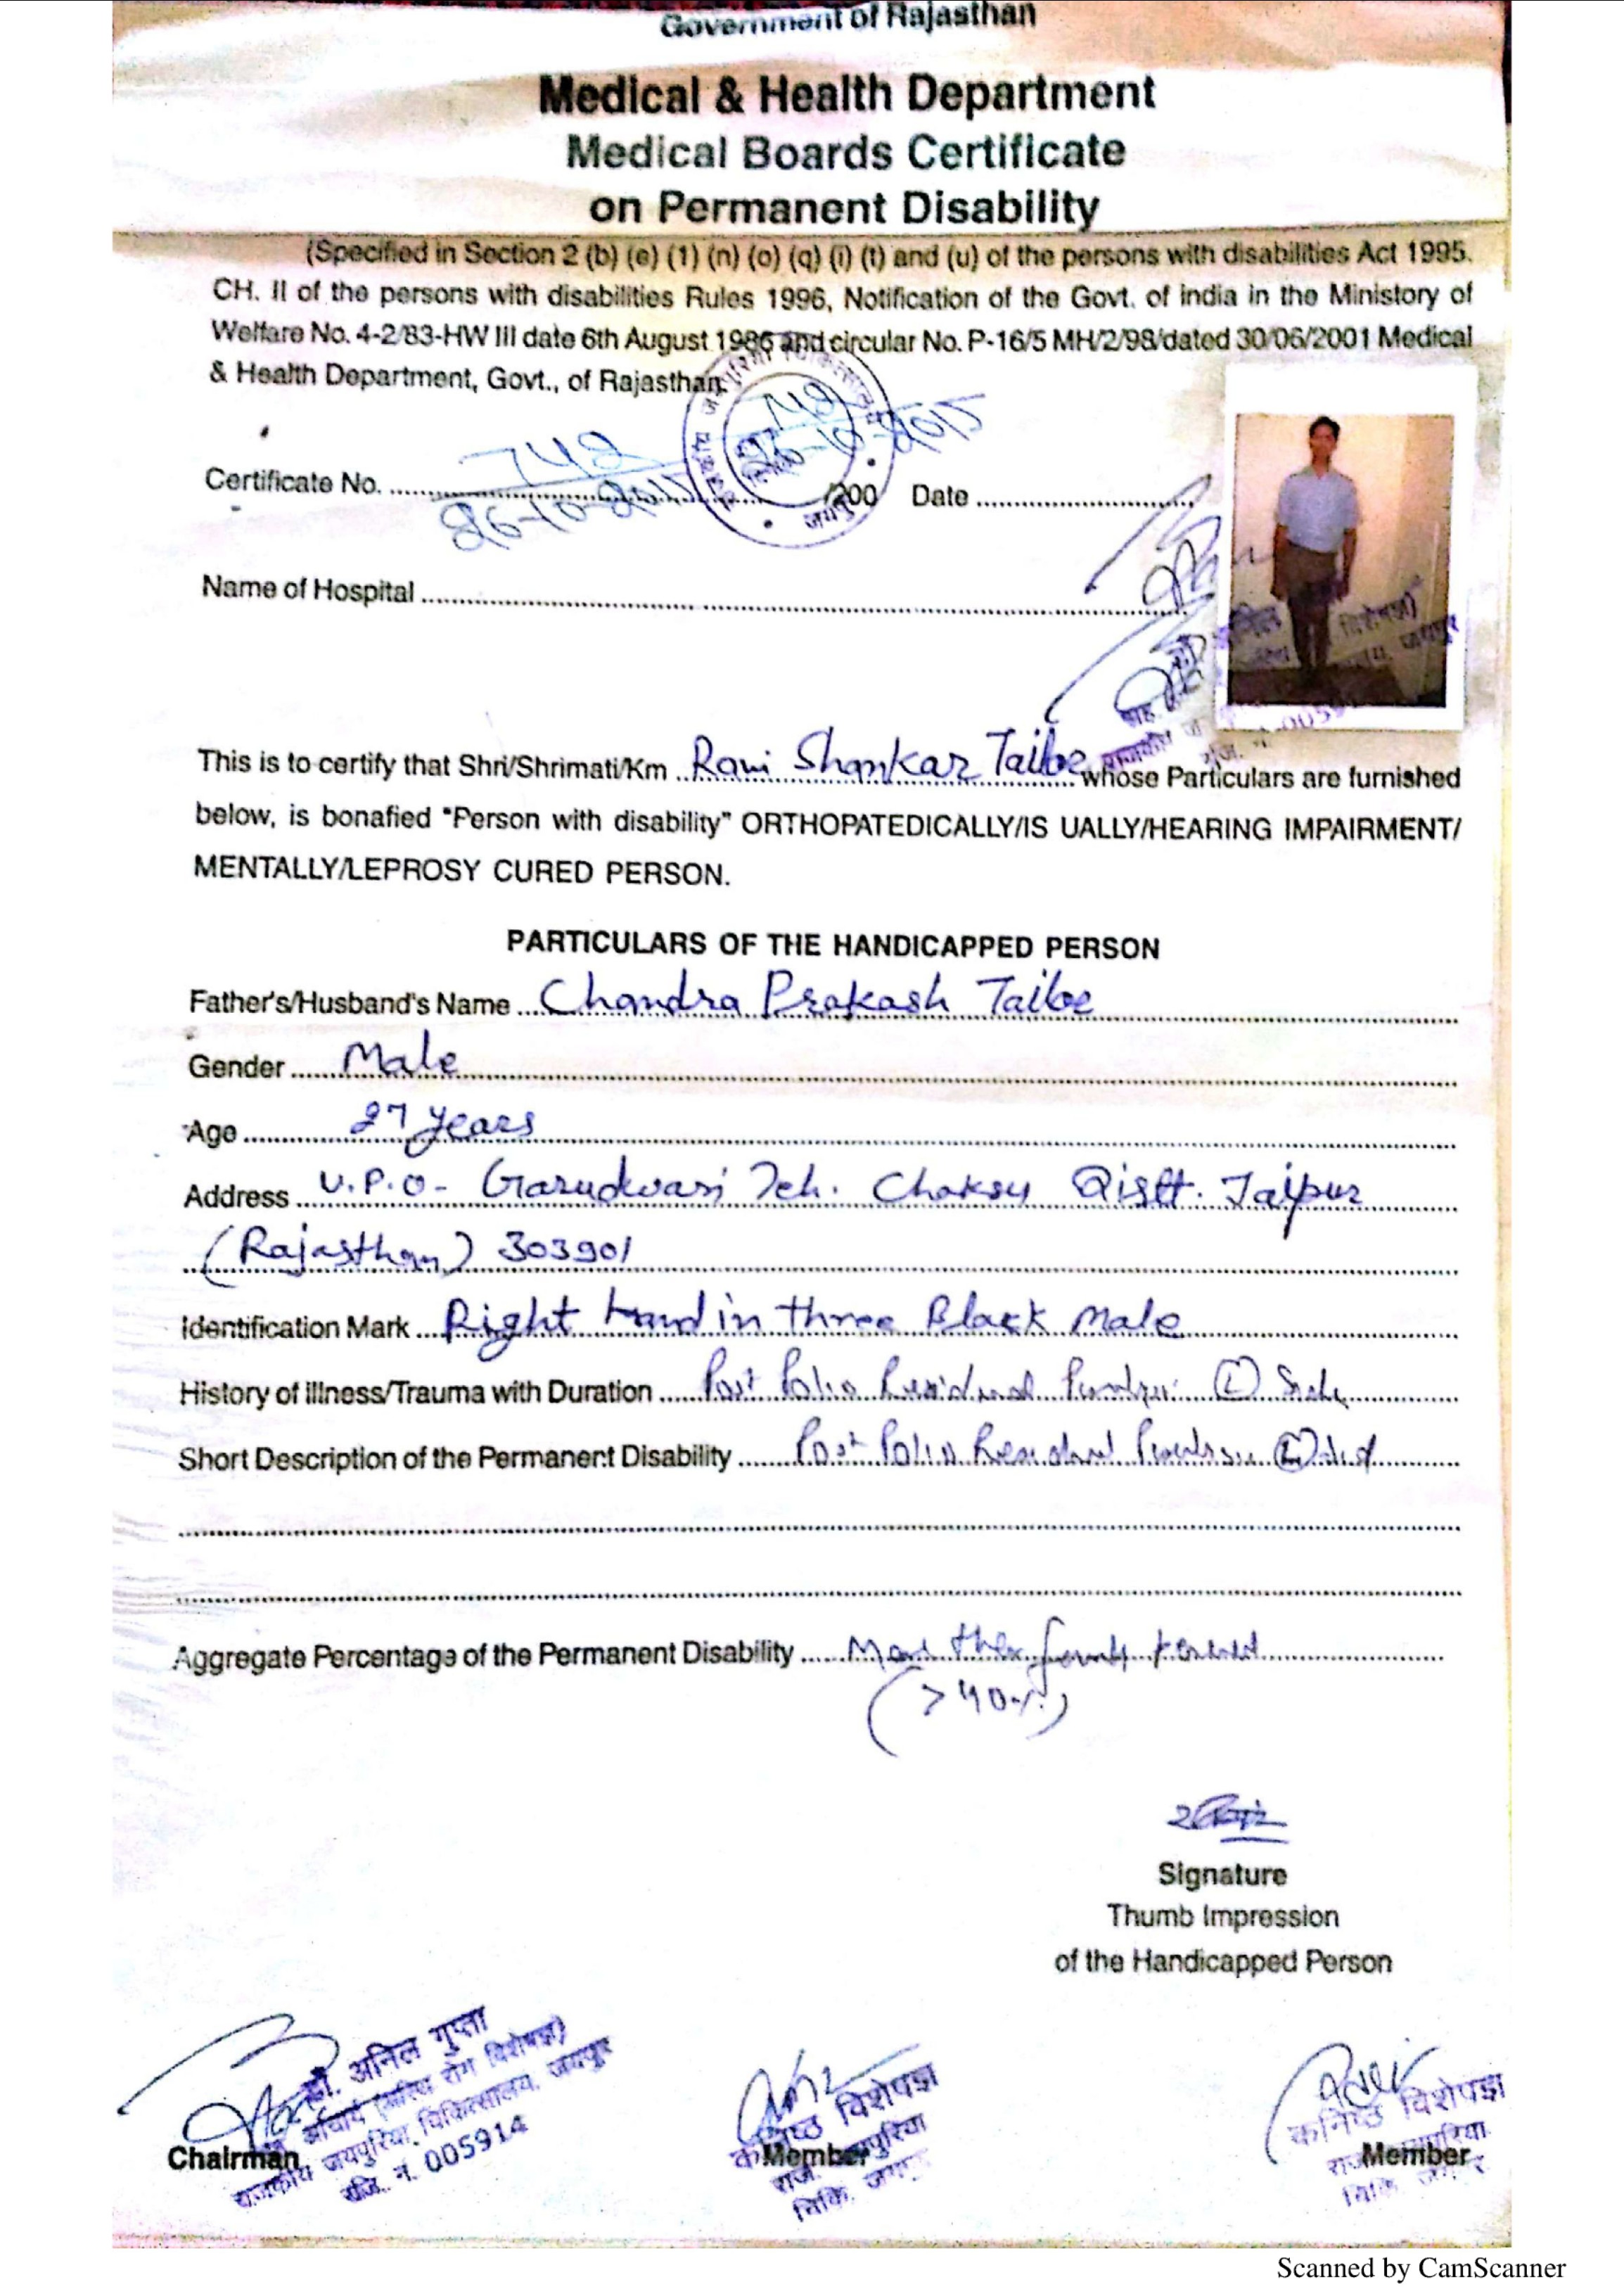 Government of Rajasthan
Medical & Health Department
Medical Boards Certificate
on Permanent Disability
(Specified in Section 2 (b) (e) (1) (n) (o) (q) (i) (t) and (u) of the persons with disabilities Act 1995.
CH. II of the persons with disabilities Rules 1996, Notification of the Govt. of india in the Ministory of
Welfare No. 4-2/83-HW III date 6th August 1986 and circular No. P-16/5 MH/2/98/dated 30/06/2001 Medical
& Health Department, Govt., of Rajasthan.
748
748
26-10-2015
Certificate No. /200 Date
जयपुर
Name of Hospital
This is to certify that Shri/Shrimati/Km Ravi Shankar Tailor whose Particulars are furnished
below, is bonafied "Person with disability" ORTHOPATEDICALLY/IS UALLY/HEARING IMPAIRMENT/
MENTALLY/LEPROSY CURED PERSON.
PARTICULARS OF THE HANDICAPPED PERSON
Father's/Husband's Name Chandra Prakash Tailor
Gender Male
Age 27 years
Address V.P.O- Garudwasi Teh. Chaksu Distt. Jaipur
(Rajasthan) 303901
Identification Mark Right hand in three Black Male
History of illness/Trauma with Duration Post Polio Residual (L) Side
Short Description of the Permanent Disability Post Polio Residual (L)
Aggregate Percentage of the Permanent Disability
(>40%)
Signature
Thumb Impression
of the Handicapped Person
डॉ. अनिल गुप्ता
आचार्य (अस्थि रोग विशेषज्ञ)
राजकीय जयपुरिया चिकित्सालय, जयपुर
रजि. न. 005914
Chairman
कनिष्ठ विशेषज्ञ
Member
कनिष्ठ विशेषज्ञ
Member
Scanned by CamScanner